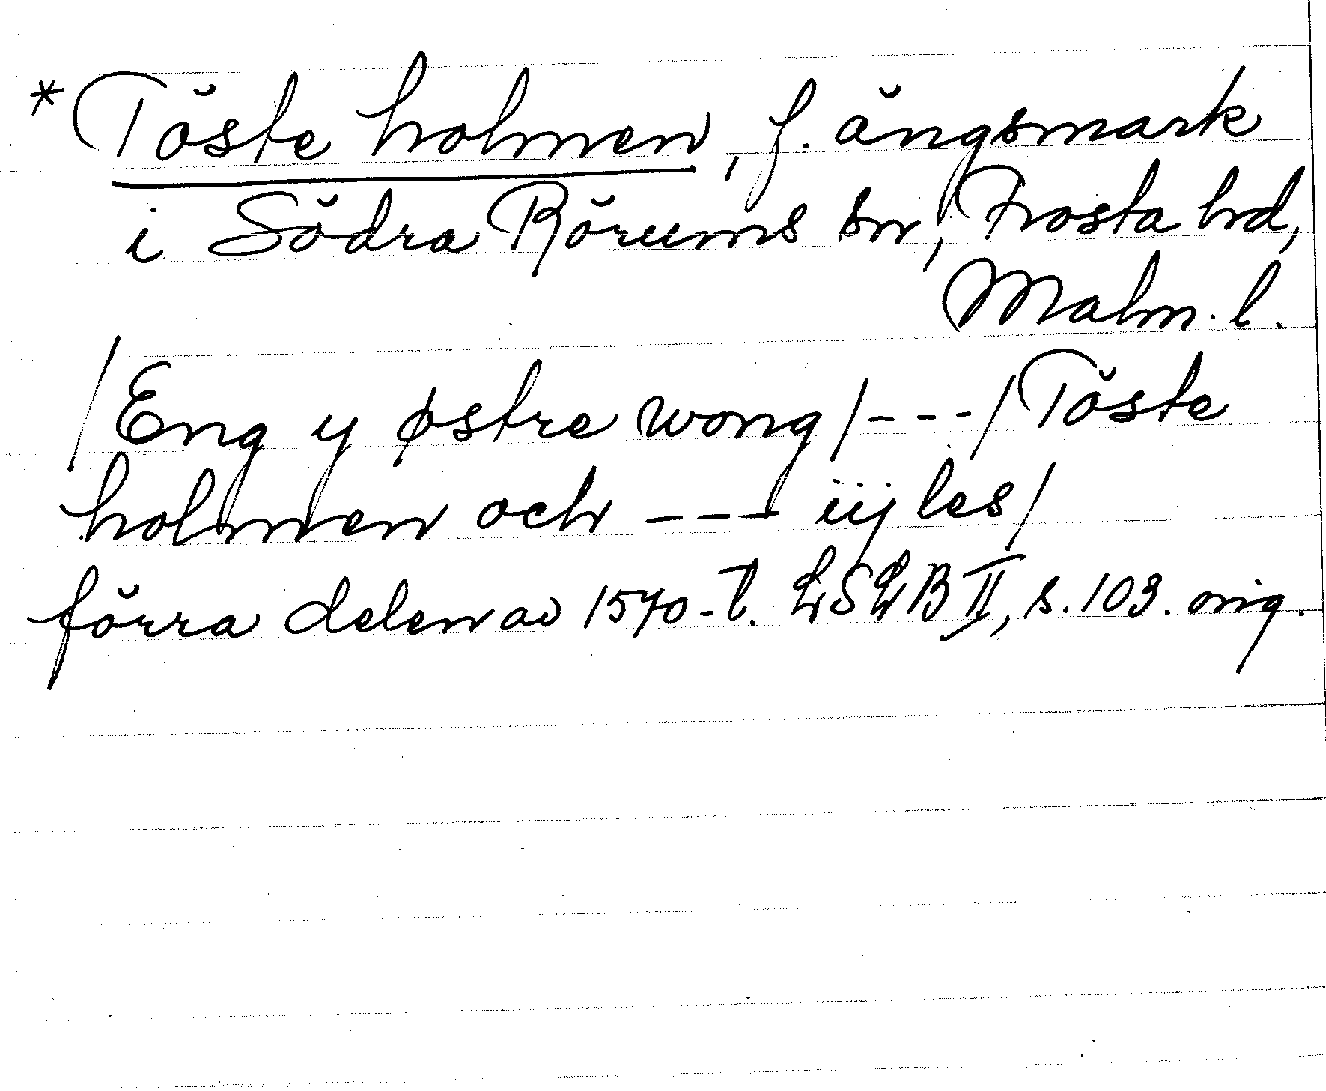 *Töste holmen, f. ängsmark
i Södra Rörums sn, Frosta hd,
Malm. l.
/Eng y østre wong/---/Töste
holmen och --- iij les/
förra delen av 1570-t. LSLB II, s. 103. orig.